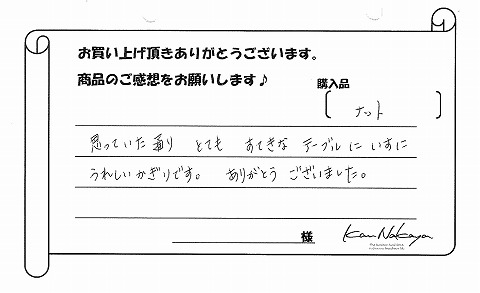 お買い上げ頂きありがとうございます。
商品のご感想をお願いします♪
購入品
ナット
思っていた通り とても すてきな テーブルに いすに
うれしいかぎりです。 ありがとう ございました。
様
Kan Nakaya